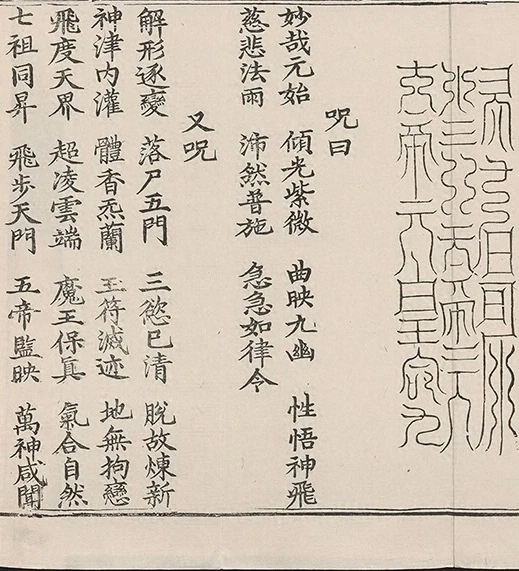 咒曰
妙哉元始 傾光紫微 曲映九幽 性悟神飛
慈悲法雨 沛然普施 急急如律令
又咒
解形逐變 落尸五門 三慾已清 脫故煉新
神津內灌 體香炁蘭 玉符滅迹 地無拘戀
飛度天界 超凌雲端 魔王保真 氣合自然
七祖同昇 飛步天門 五帝監映 萬神咸聞